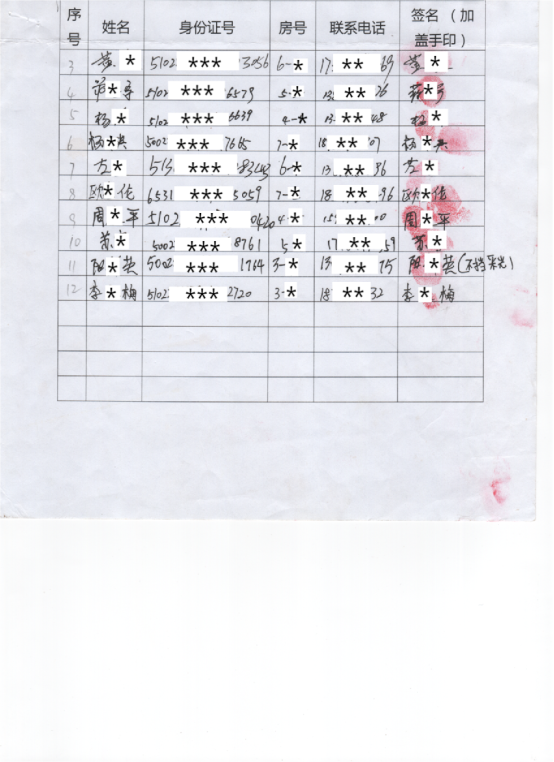 序号 姓名 身份证号 房号 联系电话 签名（加盖手印）
3 黄* 5102***3056 6-* 17**69 黄*
4 * 5102***6579 5-* 13**26 *
5 杨* 5102***6639 4-* 13**48 杨*
6 杨* 5002***7665 7-* 18**07 杨*
7 左* 513***8343 6-* 13**36 左*
8 欧*伦 6531***5059 7-* 18**96 欧*伦
9 周*平 5102***0420 4-* 15**10 周*平
10 苏* 5002***8761 5-* 17**59 苏*
11 阳*英 5002***1764 3-* 13**75 阳*英(不挡采光)
12 李*梅 5102***2720 3-* 18**32 李*梅